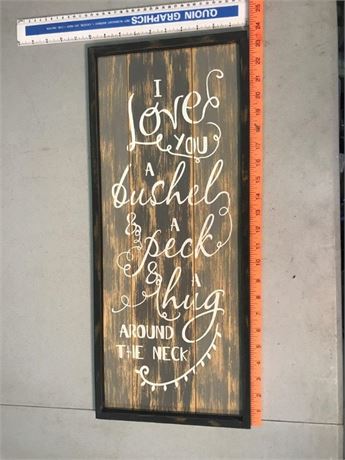 QUOIN GRAPHICS
I
Love
YOU
A
bushel
& A
peck
& A
hug
AROUND
THE NECK